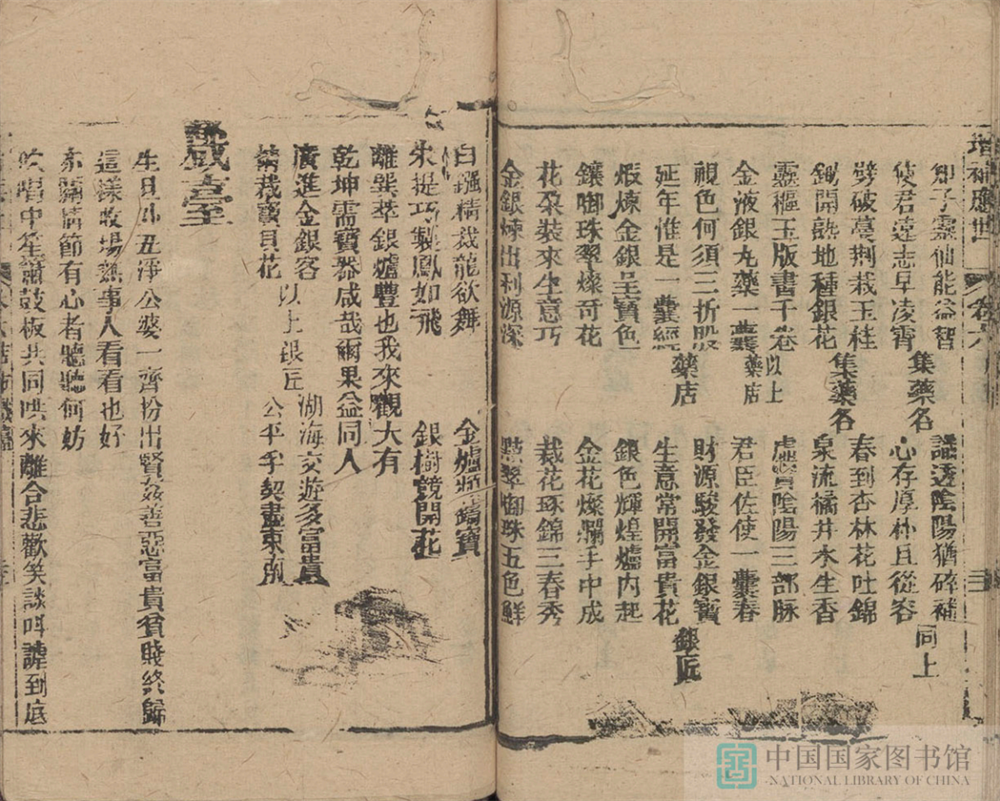 增補應世 卷六
知子靈仙能益智 集藥名 識透陰陽猶碎補 同上
使君遠志早凌霄 心存厚朴且從容
劈破蔓荆栽玉桂 集藥名 春到杏林花吐錦
鋤開熟地種銀花 泉流橘井水生香
靈樞玉版書千卷 以上藥店 虛實陰陽三部脉
金液銀丸藥一囊 君臣佐使一囊春
視色何須三折股 藥店 財源駿發金銀寶 銀匠
延年惟是一囊經 生意常開富貴花
煅煉金銀呈寶色 銀色輝煌爐內起
鑲啣珠翠燦奇花 金花燦爛手中成
花朶裝來生意巧 裁花琢錦三春秀
金銀煉出利源深 點翠啣珠五色鮮
白鏹精裁龍欲舞 金爐鑄寶
朱提巧製鳳如飛 銀樹競開花
離巽萃銀爐豐也我來觀大有
乾坤需寶器咸哉爾果益同人
廣進金銀客 以上銀匠 湖海交遊多富貴
裁寶貝花 公平孚契盡東南
戲臺
生旦外丑淨公婆一齊扮出賢姦善惡富貴貧賤終歸
這樣收場熱事人看看也好
情節有心者聽聽何妨
吹唱中笙簫鼓板共同哄來離合悲歡笑談叫謔到底
中国国家图书馆
NATIONAL LIBRARY OF CHINA